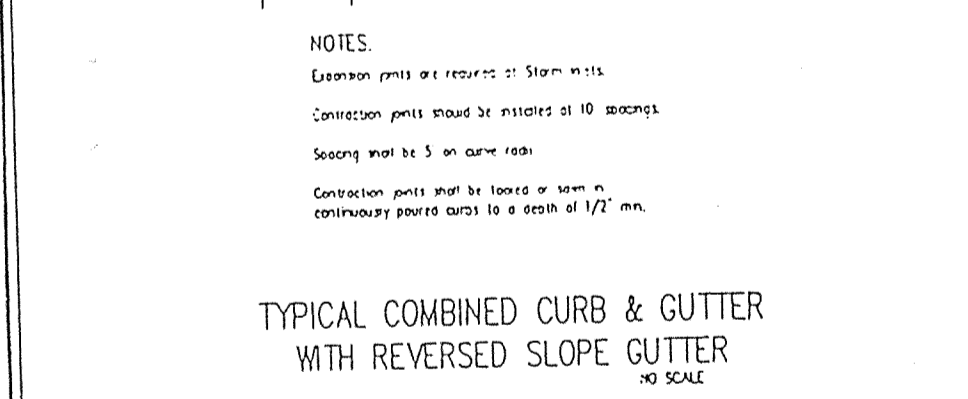 NOTES.
Expansion joints are required at Storm inlets.
Contraction joints should be installed at 10 spacings.
Spacing shall be 5 on curve radii
Contraction joints shall be tooled or sawn in
continuously poured curbs to a depth of 1/2" min.
TYPICAL COMBINED CURB & GUTTER
WITH REVERSED SLOPE GUTTER
NO SCALE